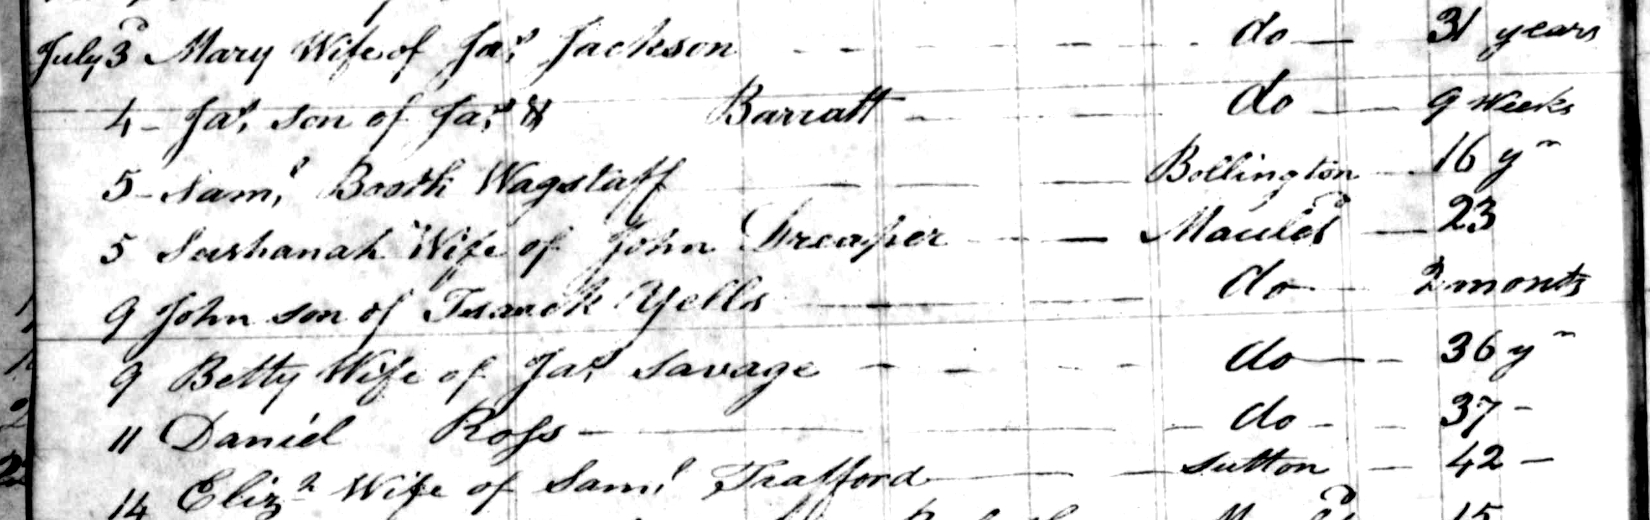 July 3 Mary Wife of Jas. Jackson - - - - - - - do — 31 years
4 - Jas. son of Jas. & Barratt - - - - do — 9 Weeks
5 - Saml. Booth Wagstaff — — — Bollington — 16 yrs
5 Sushanah Wife of John Dreaper - - — Maccles'd — 23
9 John son of Isaack Yells — — — do — 2 monts
9 Betty Wife of Jas. Savage - - - - do — - 36 yrs
11 Daniel Ross — — — do - - 37 -
14 Elizh Wife of Saml. Trafford — — Sutton — 42 -
15